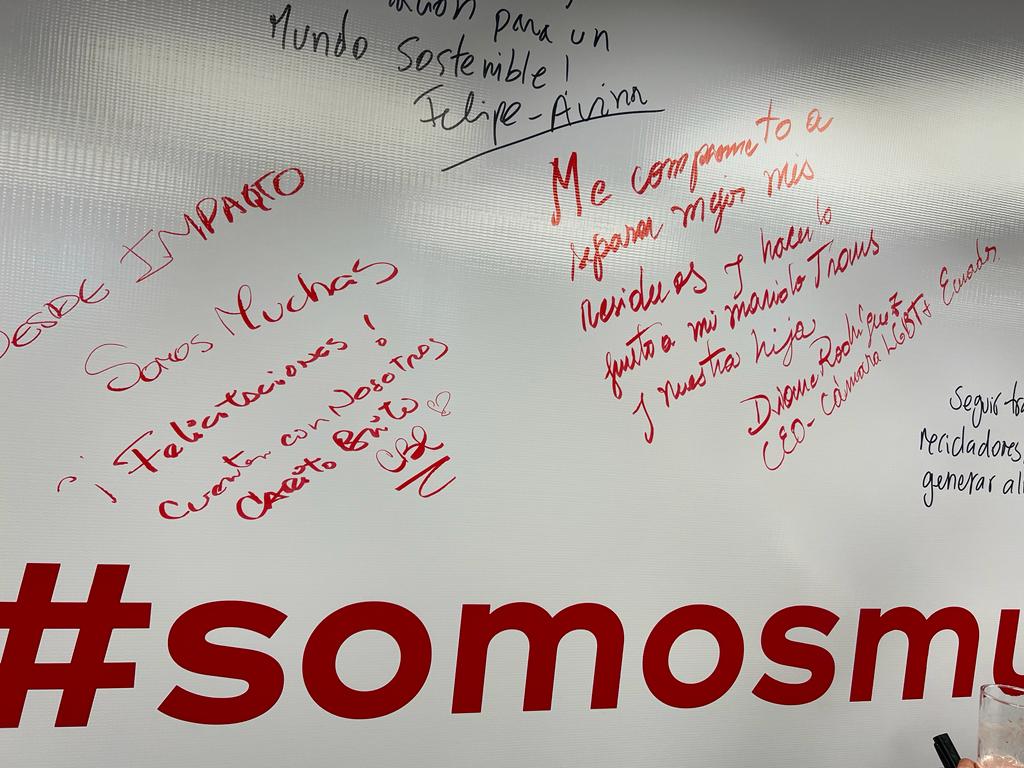 para un
Mundo Sostenible!
Felipe-Avina
DESDE IMPAQTO
Somos Muchas
¡Felicitaciones!
Cuentan con Nosotros
CARITO Brito ♡
CBL
Me comprometo a
separar mejor mis
residuos y hacerlo
junto a mi marido Trans
y nuestra hija
Diane Rodríguez
CEO- Cámara LGBT+ Ecuador
Seguir
recicladores,
generar
#somosmu